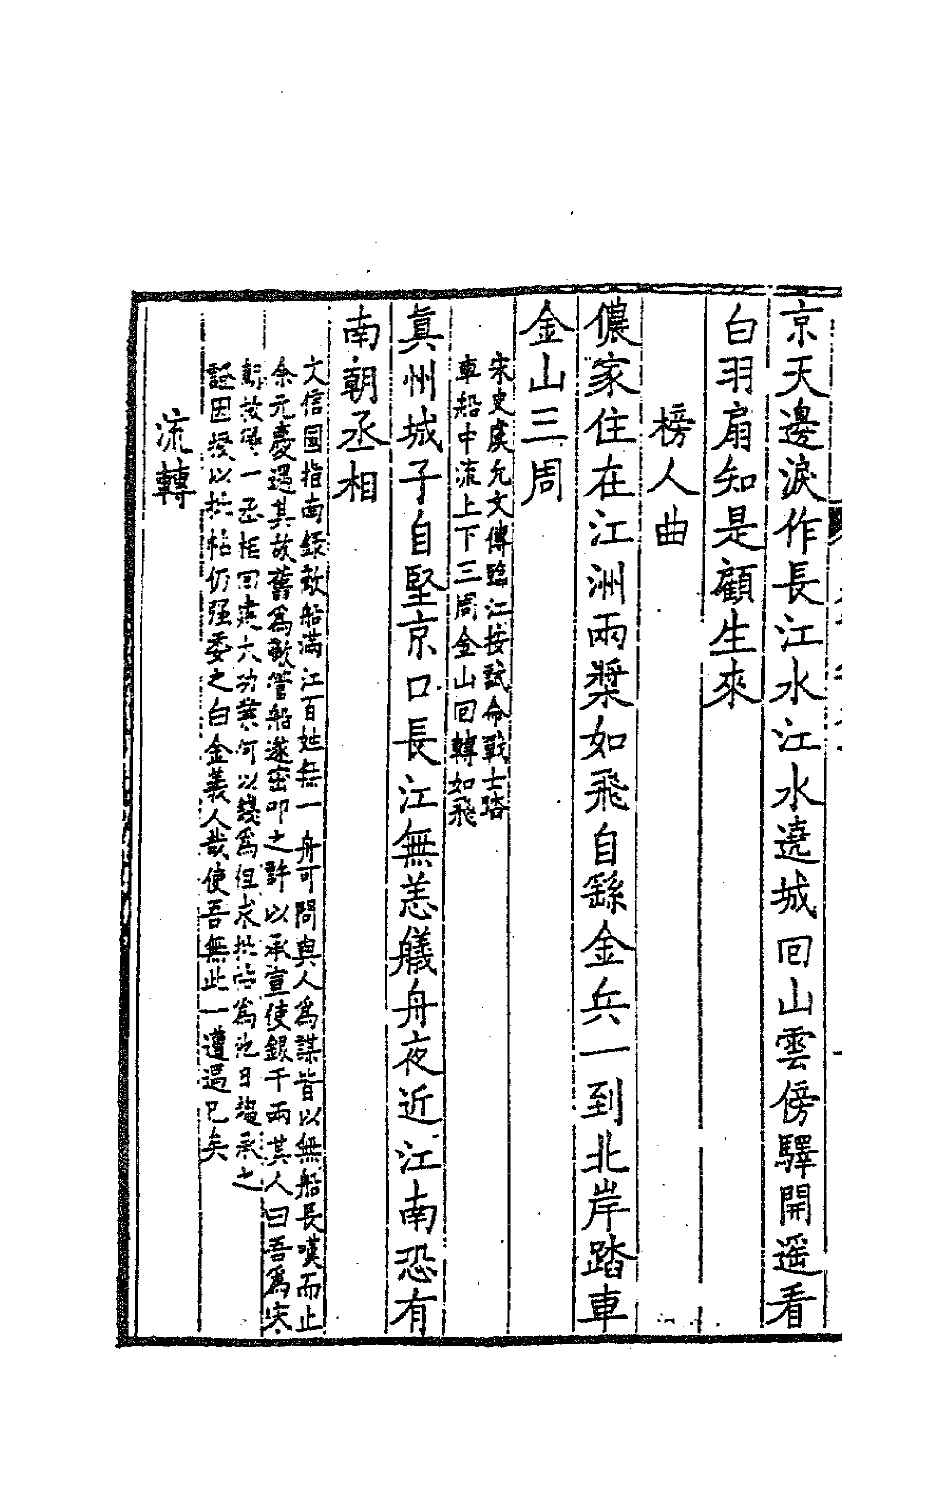 京天邊淚作長江水江水遶城回山雲傍驛開遥看
白羽扇知是顧生來
榜人曲
儂家住在江洲兩槳如飛自繇金兵一到北岸踏車
金山三周
宋史虞允文傳臨江按試命戰士踏
車船中流上下三周金山回轉如飛
真州城子自堅京口長江無恙艤舟夜近江南恐有
南朝丞相
文信國指南錄敵船滿江百姓無一舟可問與人為謀皆以無船長嘆而止
余元慶遇其故舊為敵管船遂密叩之許以承宣使銀千兩其人曰吾為宋
救得一丞相回建大功業何以錢為但求批帖為他日趨承之
証因授以批帖仍强委之白金義人哉使吾無此一遭遇已矣
流轉